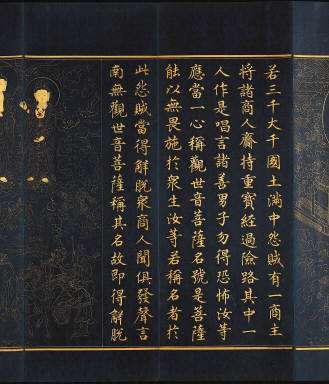 若三千大千國土滿中怨賊有一商主
將諸商人齎持重寶經過險路其中一
人作是唱言諸善男子勿得恐怖汝等
應當一心稱觀世音菩薩名號是菩薩
能以無畏施於衆生汝等若稱名者於
此怨賊當得解脫衆商人聞俱發聲言
南無觀世音菩薩稱其名故即得解脫